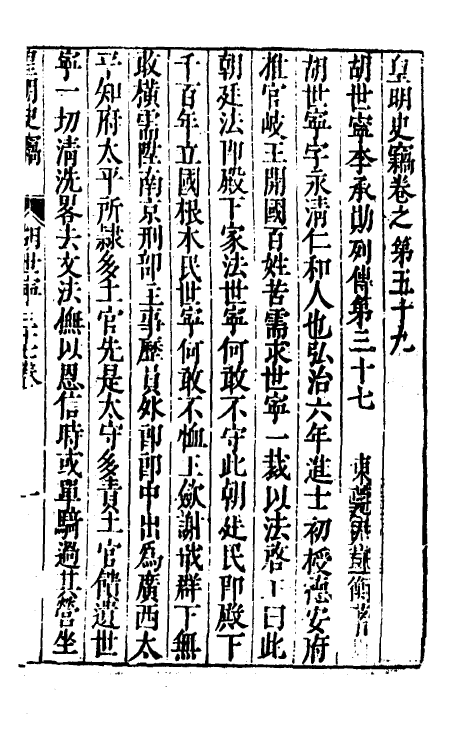 皇明史竊卷之第五十九
胡世寧李承勛列傳第三十七 東莞尹守衡著
胡世寧字永清仁和人也弘治六年進士初授德安府
推官岐王開國百姓苦需求世寧一裁以法啓王曰此
朝廷法即殿下家法世寧何敢不守此朝廷民即殿下
千百年立國根本民世寧何敢不恤王斂謝戒群下無
敢橫需陞南京刑部主事歷員外郎郎中出為廣西太
平知府太平所隸多土官先是太守多責土官餽遺世
寧一切清洗畧去文法憮以恩信時或單騎過其營坐
皇明史竊 胡世寧三十七卷 一